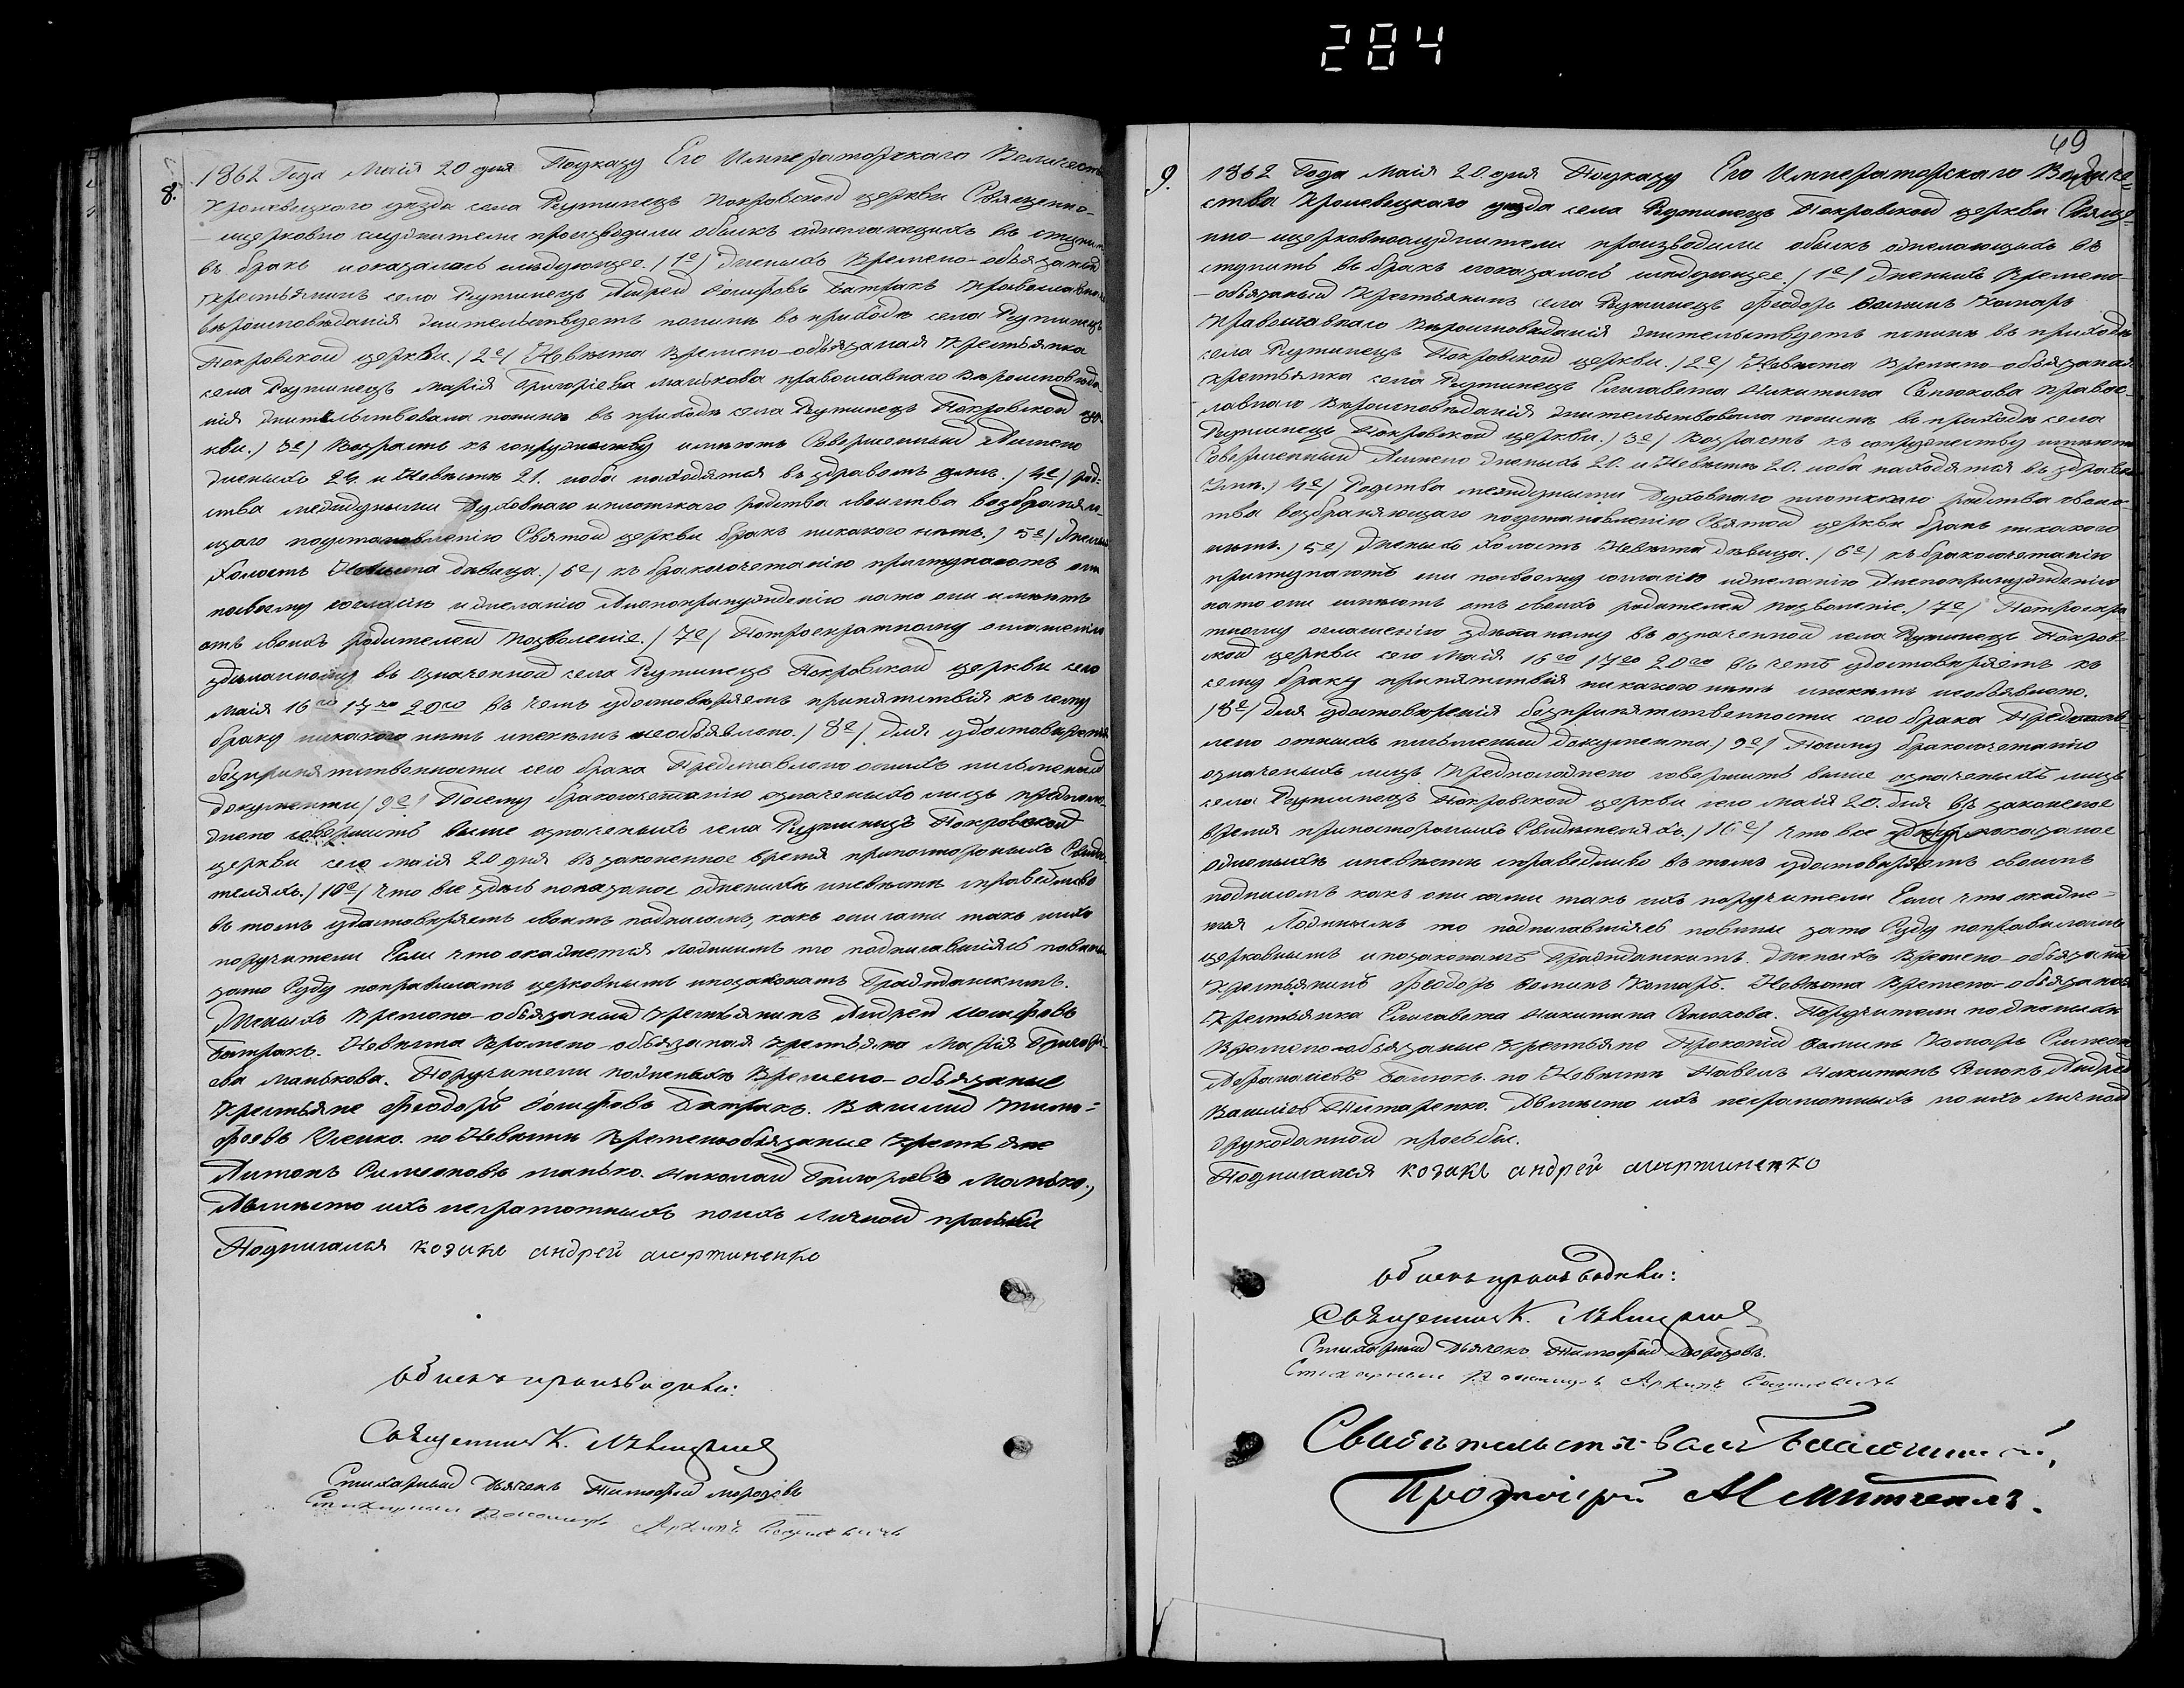 284
8. 1862 Года Маія 20 дня Поуказу Его Императорскаго Величест
Кролевецкаго уезда села Рутинецъ Покровской церкви Священно-
-церковно служители производили обыскъ ожелающихъ въ ступит
въ бракъ иоказалось следующее. /1е/ Женыхъ Времено-обязаный
крестьянинъ села Рутинецъ Андрей Іосифовъ Батракъ Православнаго
вероисповеданія жительствуетъ поныне въ приходе села Рутинецъ
Покровской церкви. /2е/ Невеста Времено-обязаная Крестьянка
села Рутинецъ Марія Григоріева Манькова православнаго Вероисповеда-
нія жительствовала поныне въ приходе села Рутинецъ Покровской цер-
кви. /3е/ Возрастъ къ супружеству имеютъ Совершенный Аимено
женыхъ 24. и Невеста 21. иоба находятся въ здравомъ уме. /4е/ род-
ства междуными Духовнаго иплотскаго родства своиства возбраняю-
щаго поустановленію Святой церкви бракъ никакого нетъ. /5е/ Женыхъ
Холостъ Невеста девица. /6е/ къ бракосочетанію приступаютъ они
посвоему согласію ижеланію Анепопринужденію нато они имеютъ
отъ своихъ родителей Позволеніе. /7е/ Потроекратному оглашенію
зделанному въ означенной села Рутинецъ Покровской церкви сего
Маія 16го 17го 20го въ чемъ удостоверяемъ припятствія къ сему
браку никакого нетъ иникемъ необъявлено. /8е/ Для удостоверенія
безприпятственности сего брака Представлено онихъ письменный
документи /9е/ Посему бракосочетанію означеныхъ лицъ предполо-
жено совершить выше означеныхъ села Рутинецъ Покровской
церкви сего маія 20 дня въ законенное время припостороныхъ Свиде-
теляхъ. /10е/ что все здесь показаное оженихе иневесте справедливо
въ томъ удостоверяетъ своимъ подписомъ, какъ они сами такъ иихъ
поручители Если что окажется ложнымъ то подписавшіяся повинны
зато Суду поправиламъ церковнымъ ипозаконамъ Гражданскимъ.
Женыхъ Времено-обязаный Крестьянинъ Андрей Іосифовъ
Батракъ. Невеста Времено-обязаная крестьяна Марія Григорі-
ева Манькова. Поручители поженыхе Времено-обязаные
Крестьяне Феодоръ Іосифовъ Батракъ. Василій Тимо-
феевъ по Невесте Временообязаные крестьяне
Антонъ Симеоновъ манько. Николай Григорьевъ Манько.,
Авместо ихъ неграмотныхъ поихъ личной прозьбы
Подписался козакъ андрей мартиненко
обыскъ производили:
Священник К. Левицкий
Стихарный Дьячекъ Тимофей морозовъ
Стихарный Пономарь Архипъ
49
9. 1862 Года Маія 20. дня Поуказу Его Императорскаго Величе-
ства Кролевецкаго уезда села Рутинецъ Покровской церкви Свяще-
нно-церковнослужители производили обыскъ ожелающихъ въ
ступить въ бракъ иоказалось следующее. /1е/ Женыхъ Времено-
-обязаный Крестьянинъ села Рутинецъ Феодоръ Фоминъ Комаръ
Православнаго Вероисповеданія жительствуетъ поныне въ приходе
села Рутинецъ Покровской церкви. /2е/ Невеста Времено-обязаная
крестьянка села Рутинецъ Елисавета Никитина православ-
лавнаго Вероисповеданія жительствовала поныне въ приходе села
Рутинецъ Покровской церкви. /3е/ Возрастъ къ супружеству имеютъ
Совершенный Аимено женыхъ 20. и Невеста 20. иоба находятся въ здравомъ
Уме. /4е/ Родства междуными Духовнаго плотскаго родства своис-
тва возбраняющаго поустановленію Святой церкви бракъ никакого
нетъ. /5е/ Женыхъ Холостъ Невеста девица. /6е/ къ бракосочетанію
приступаютъ они посвоему согласію ижеланію Анепопринужденію
нато они имеютъ отъ своихъ родителей позволеніе. /7е/ Потроекра-
тному оглашению зделаному въ означенной села Рутинецъ Покров-
ской церкви сего Маія 16го 17го 20го въ чемъ удостоверяетъ къ
сему браку припятствія никакого нетъ иникемъ необъявлено.
/8е/ Для удостоверенія безприпятственности сего брака Представ-
лено онихъ письменный документи. /9е/ Посему бракосочетанію
означеныхъ лицъ Предположено совершить выше означеныхъ лицъ
села Рутинецъ Покровской церкви сего маія 20. дня въ законеное
время припосторонихъ Свидетеляхъ. /10е/ что все здесь показаное
ожених иневесте справедливо въ томъ удостоверяетъ своимъ
подписомъ какъ они сами такъ ихъ поручители Если что окаже-
тся Ложнымъ то подписавшіяся повины зато Суду поправиламъ
церковнымъ ипозаконамъ Гражданскимъ. Женыхъ Времено-обязаный
Крестьянинъ Феодоръ Фоминъ Комаръ. Невеста Времено-обязаная
Крестьянка Елисавета Никитина. Поручители поженыхе
Времено-обязаные Крестьяне Прокопій Фоминъ Комаръ Симеонъ
по Невесте Павелъ Никитинъ Андрей
Васильев Титаренко. Авместо ихъ неграмотныхъ поихъ личной
рукоданной прозьбы.
Подписался козакъ андрей мартиненко
обыскъ производили:
Священник К. Левицкий
Стихарный Дьячекъ Тимофей Морозовъ.
Стихарный Пономарь Архипъ
Свидетельствовалъ Благочинный,
Протоіерей